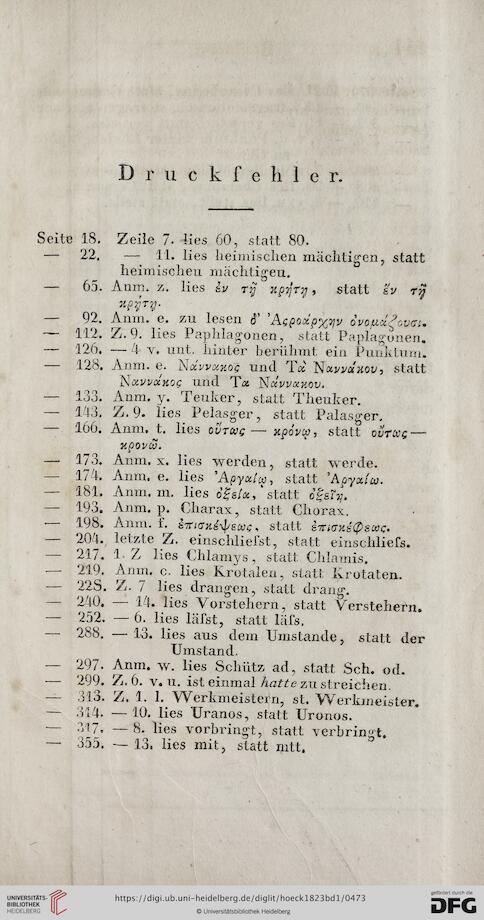 Druckfehler.
Seite 18. Zeile 7. lies 60, statt 80.
— 22. — 11. lies heimischen mächtigen, statt
heimischeu mächtigeu.
— 65. Anm. z. lies ἐν τῇ κρήτῃ, statt ἔν τῇ
κρήτῃ.
— 92. Anm. e. zu lesen δ' Ἀςροάρχην ὀνομάζουσι.
— 112. Z. 9. lies Paphlagonen, statt Paplagonen.
— 126. — 4 v. unt. hinter berühmt ein Punktum.
— 128. Anm. e. Νάννακος und Τὰ Ναννάκου, statt
Ναννάκος und Τα Νάννακου.
— 133. Anm. y. Teuker, statt Theuker.
— 143. Z. 9. lies Pelasger, statt Palasger.
— 166. Anm. t. lies οὕτως — κρόνῳ, statt οὑτως —
κρονῶ.
— 173. Anm. x. lies werden, statt werde.
— 174. Anm. e. lies Ἀργαίῳ, statt Ἀργαίω.
— 181. Anm. m. lies ὀξεία, statt ὀξείῃ.
— 193. Anm. p. Charax, statt Chorax.
— 198. Anm. f. ἐπισκέψεως, statt ἐπισκέφσεως.
— 204. letzte Z. einschließt, statt einschließs.
— 217. 1. Z lies Chlamys, statt Chlamis.
— 219. Anm. c. lies Krotalen, statt Krotaten.
— 228. Z. 7 lies drangen, statt drang.
— 240. — 14. lies Vorstehern, statt Verstehern.
— 252. — 6. lies läßt, statt läfs.
— 288. — 13. lies aus dem Umstande, statt der
Umstand.
— 297. Anm. w. lies Schütz ad, statt Sch. od.
— 299. Z. 6. v. u. ist einmal hatte zu streichen.
— 313. Z. 1. l. Werkmeistern, st. Werkmeister.
— 314. — 10. lies Uranos, statt Uronos.
— 317. — 8. lies vorbringt, statt verbringt.
— 355. — 13. lies mit, statt mtt.
UNIVERSITÄTS-
BIBLIOTHEK
HEIDELBERG
https://digi.ub.uni-heidelberg.de/diglit/hoeck1823bd1/0473
© Universitätsbibliothek Heidelberg
gefördert durch die
DFG